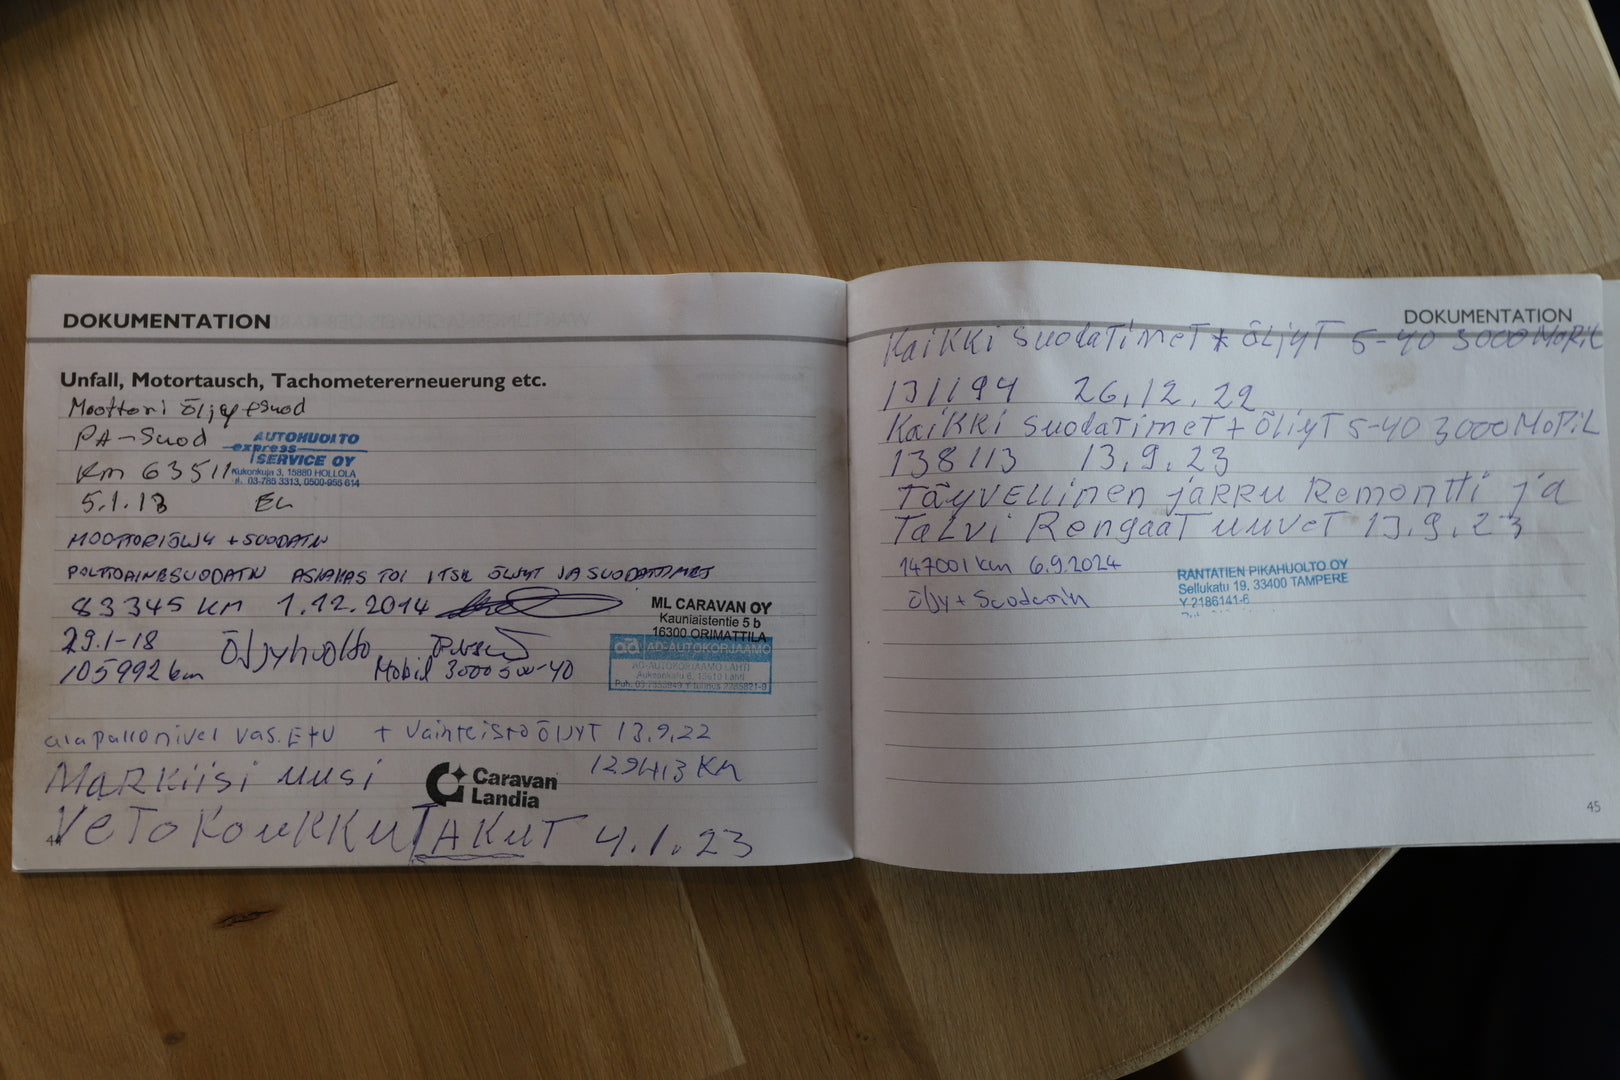 DOKUMENTATION
Unfall, Motortausch, Tachometererneuerung etc.
Moottori öljyt + suod
PA-Suod
AUTOHUOLTO
express
SERVICE OY
Kukonkuja 3, 15880 HOLLOLA
03-785 3313, 0500-955 614
Km 63511
5.1.13
MOOTTORIÖLJY + SUODATIN
POLTTOAINESUODATIN ASIAKAS TOI ITSE ÖLJYT JA SUODATTIMET
83345 KM 1.12.2014
ML CARAVAN OY
Kauniaistentie 5 b
16300 ORIMATTILA
29.1-18 Öljyhuolto
105992 km Mobil 3000 5W-40
ad AD-AUTOKORJAAMO
AD-AUTOKORJAAMO LAHTI
alapallonivel vas. Etu + vaihteistoöljyt 13.9.22
Markiisi uusi
Caravan
Landia
129413 KM
VetoKoukku AKUT 4.1.23
DOKUMENTATION
Kaikki suodatimet * öljyt 5-40 3000 MoPil
131194 26.12.22
Kaikki suodatimet + öliyt 5-40 3000 MoPil
138113 13.9.23
Täyvellinen jarru Remontti ja
Talvi Rengaat uuvet 13.9.23
147001 km 6.9.2024
RANTATIEN PIKAHUOLTO OY
Sellukatu 19, 33400 TAMPERE
Y 2186141-6
Öljy +
45